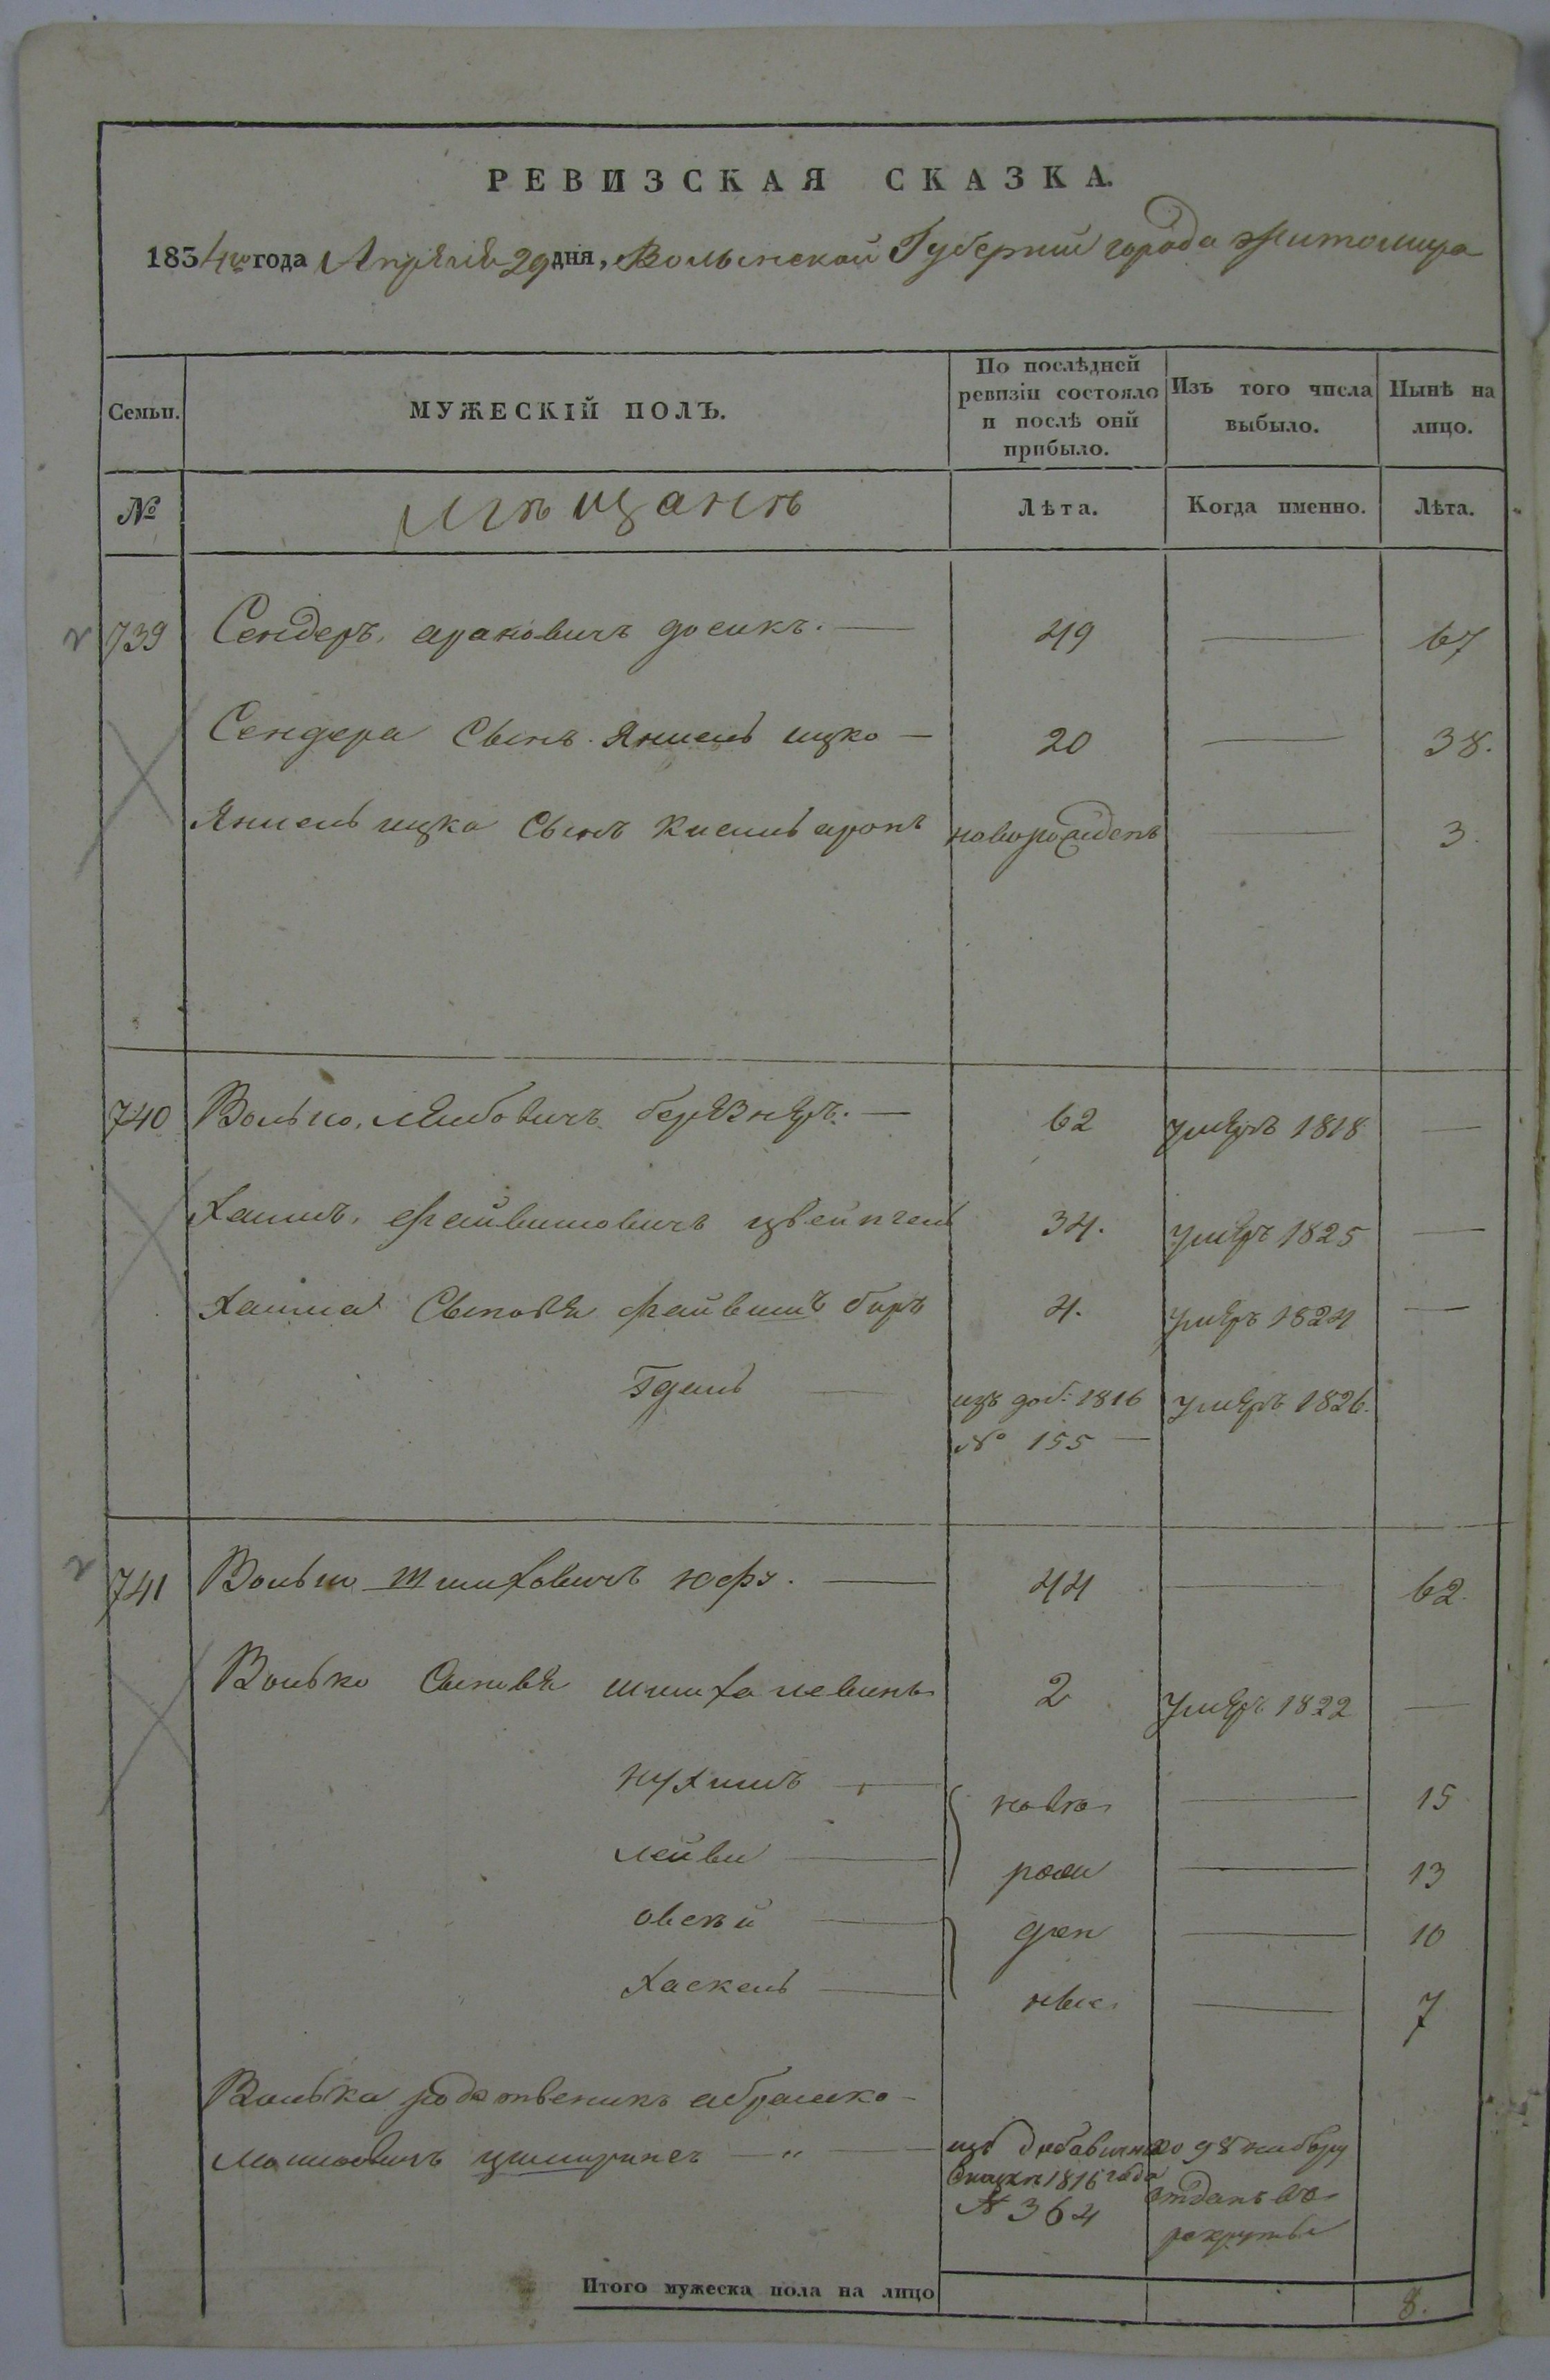 РЕВИЗСКАЯ СКАЗКА.
1834го года Апреля 29 дня, Волынской Губернии города Житомира
Семьи.
МУЖЕСКІЙ ПОЛЪ.
По послѣдней ревизіи состояло и послѣ оній прибыло.
Изъ того числа выбыло.
Нынѣ на лицо.
№
Мѣщанѣ
Лѣта.
Когда именно.
Лѣта.
739 Сендеръ, ароновичъ досикъ. — 49 — 67
Сендера Сынъ Янкель ицко — 20 — 38.
Янкель ицка Сынъ Кисиль аронъ новорожденъ — 3.
740 Волько, Лейбовичъ березнеръ. — 62 умеръ 1818 —
Хаимъ, Файвишовичъ 34. умеръ 1825 —
Хаима Сыновя Файвишъ беръ 4. умеръ 1824 —
Гдаль — изъ доб: 1816 умеръ 1826.
№ 155 —
741 Волько Шмиховичъ юфъ. — 44 — 62.
Волько Сыновя шлиха левинъ 2 умеръ 1822 —
нухимъ — ново — 15
лейви — рож — 13
овсей — ден — 10
Хаскель — ные — 7
Волька родственикъ абрамко —
Мошковичъ — " — изъ добавичной по 98 набору
Сказки 1816 года отданъ во
№ 364 рекруты
Итого мужеска пола на лицо 8.